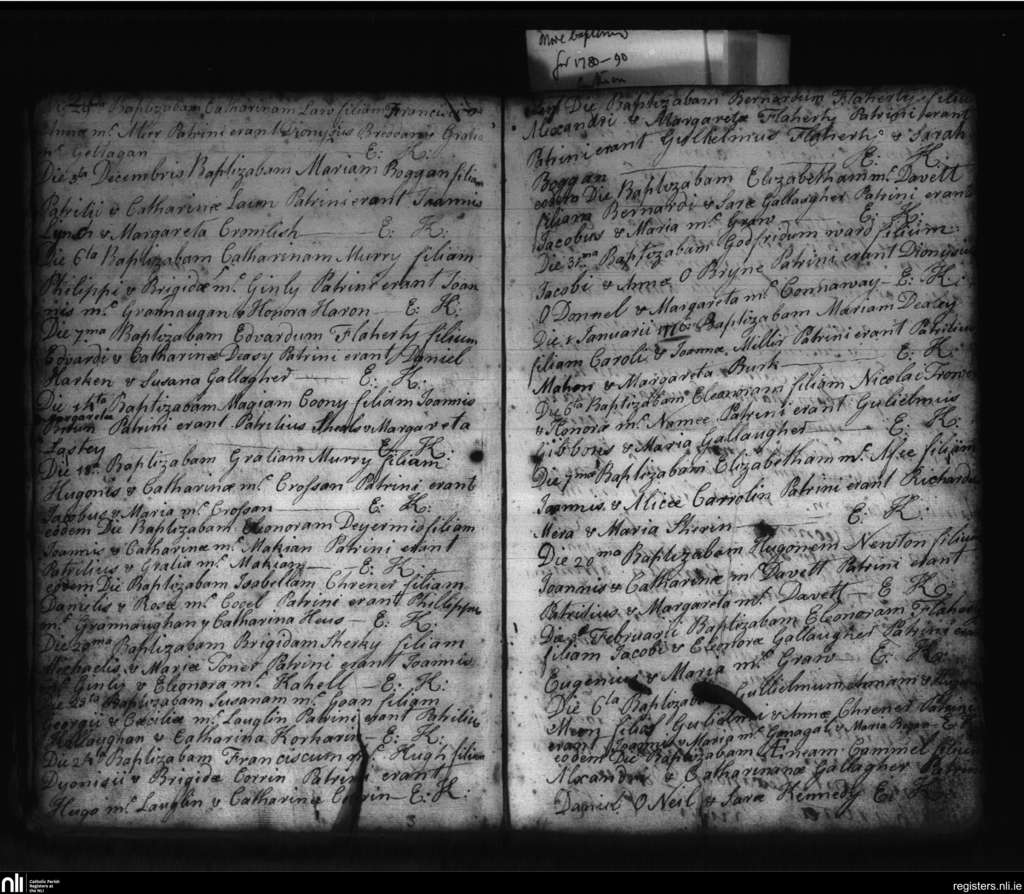 more baptisms
for 1780-90
Baptizabam Catharinam Law filiam Francisci &
Annæ mc. Aher Patrini erant Dionysius Breooan & Gralia
mc. Gettagan E: K:
Die 3tia Decembris Baptizabam Mariam Boggan filiam
Patritii & Catharinæ Laim Patrini erant Joannis
Lynch & Margareta Cromlish E: K:
Die 6ta Baptizabam Catharinam Murry filiam
Philippi & Brigidæ mc. Ginly Patrini erant Joan
nis mc. Grannaugan & Honora Haron — E: K:
Die 7ma Baptizabam Edvardum Flaherty filium
Edvardi & Catharinæ Deasy Patrini erant Daniel
Harken & Susana Gallagher E: K:
Die 14ta Baptizabam Magiam Coony filiam Joannis
Margareta
Patrini erant Patritius Sherls & Margareta
Lastey E: K:
Die Baptizabam Graliam Murry filiam
Hugonis & Catharinæ mc. Crossan Patrini erant
Jacobus & Maria mc. Crossan E: K:
eodem Die Baptizabam Elionoram Deyermio filiam
Joannis & Catharinæ mc. Makian Patrini erant
Patritius & Gralia mc. Makiam — E: K:
eodem Die Baptizabam Isobellam Chrener filiam
Danielis & Rosæ mc. Cogel Patrini erant Phillippus
mc. Grannaughan & Catharina Heus — E: K:
Die 20ma Baptizabam Brigidam Sherky filiam
Michaelis & Mariæ Toner Patrini erant Joannis
mc. Ginly & Elionora mc. Kahell — E: K:
Die 23tia Baptizabam Susanam mc. Goan filiam
Georgii & Cæciliæ mc. Lauglin Patrini erant Patritius
Gallaughan & Catharina Korharan — E: K:
Die 24ta Baptizabam Franciscum mc. Hugh filium
Dyonisii & Brigidæ Corrin Patrini erant
Hugo mc. Lauglin & Catharina Corrin — E: K:
3
Die Baptizabam Bernardum Flaherty filium
Alexandri & Margaretæ Flaherty Patrini erant
Patrini erant Guilhelmus Flaherty & Sarah
Boggan E: K:
eodem Die Baptizabam Elizabetham mc. Davett
filiam Bernardi & Saræ Gallaugher Patrini erant
Jacobus & Maria mc. Graw E: K:
Die 31ma Baptizabam Godfridum ward filium
Jacobi & Annæ O Bryne Patrini erant Dionysius
O Donnel & Margareta mc. Connaway — E: K:
Die 1 Januarii Baptizabam Mariam Dealey
filiam Caroli & Joannæ Miller Patrini erant Patritius
Mahon & Margareta Burk E: K:
Die 6ta Baptizabam Eleanoram filiam Nicolai
& Honoræ mc. Namee Patrini erant Gulielmus
Gibbons & Maria Gallaugher E: K:
Die 7ma Baptizabam Elizabetham mc. Afee filiam
Joannis & Aliceæ Carrolin Patrini erant Richardus
Mera & Maria Sherin E: K:
Die 20ma Baptizabam Hugonem Newton filium
Joannis & Catharinæ mc. Davett Patrini erant
Patritius & Margareta mc. Davett — E K:
Die Februarii Baptizabam Eleonoram Flaherty
filiam Jacobi & Eleonoræ Gallaugher Patrini erant
Eugenius & Maria mc. Graw — E: K:
Die 6ta Baptizabam Gullielmum
filios Gulielmi & Annæ Chrener Patrini
erant Joannis & Mariam mc. Ganagal & Maria Bogan — E: K:
eodem Die Baptizabam Æneam Cammel filium
Alexandri & Catharinanæ Gallagher Patrini
Daniel O Neil & Saræ Kennedy E: K:
nli
Catholic Parish
Registers at
the NLI
registers.nli.ie